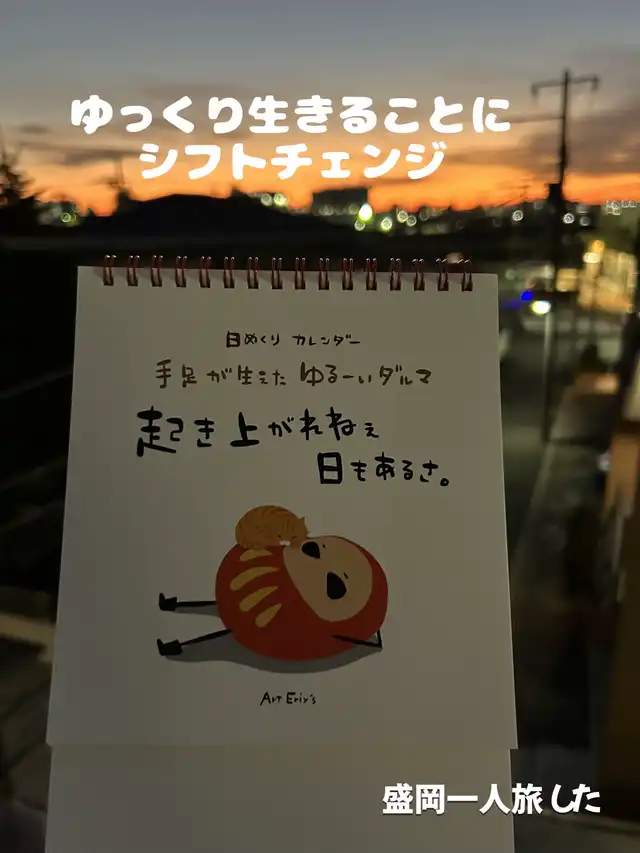 ゆっくり生きることに
シフトチェンジ
日めくり カレンダー
手足が生えた ゆるーいダルマ
起き上がれねぇ
日もあるさ。
Art Eriy's
盛岡一人旅した